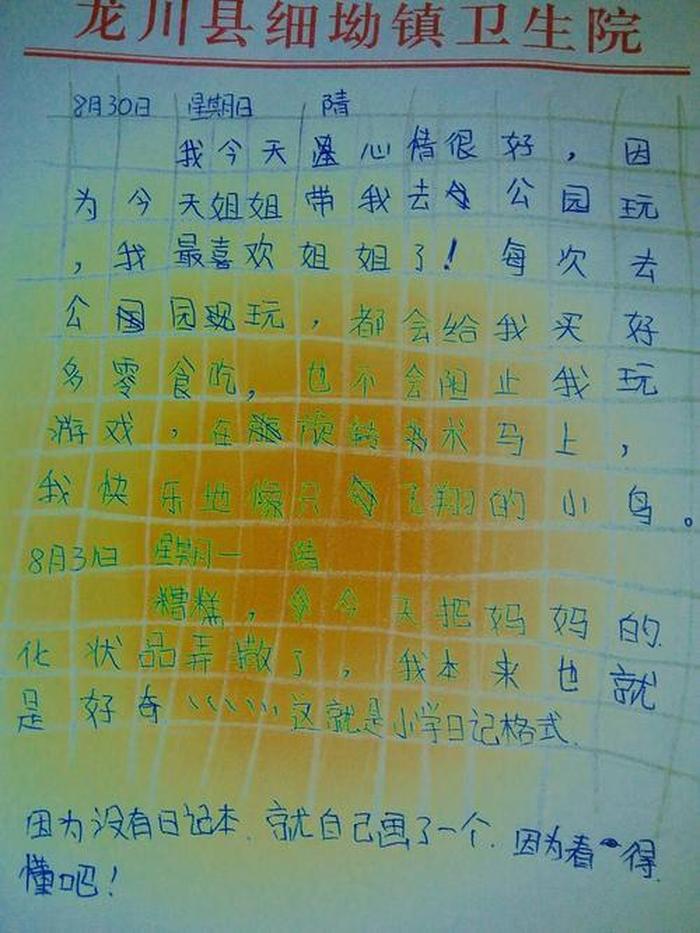 龙川县细坳镇卫生院
8月30日 星期日 晴
我今天心情很好，因
为今天姐姐带我去公园玩
，我最喜欢姐姐了！每次去
公园玩，都会给我买好
多零食吃，也不会阻止我玩
游戏，在旋转木马上，
我快乐地像只飞翔的小鸟。
8月31日 星期一 晴
糟糕，今天把妈妈的
化状品弄撒了，我本来也就
是好奇、、、、、、这就是小学日记格式.
因为没有日记本.就自己画了一个.因为看得
懂吧！